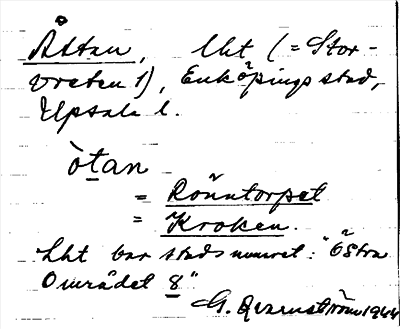 Åttan, lht (= Stor-
vreten 1), Enköpings stad,
Upsala l.
òtan
= Rönntorpet
= Kroken.
Lht bar stadsnumret: "Östra
Området 8"
G. 1944